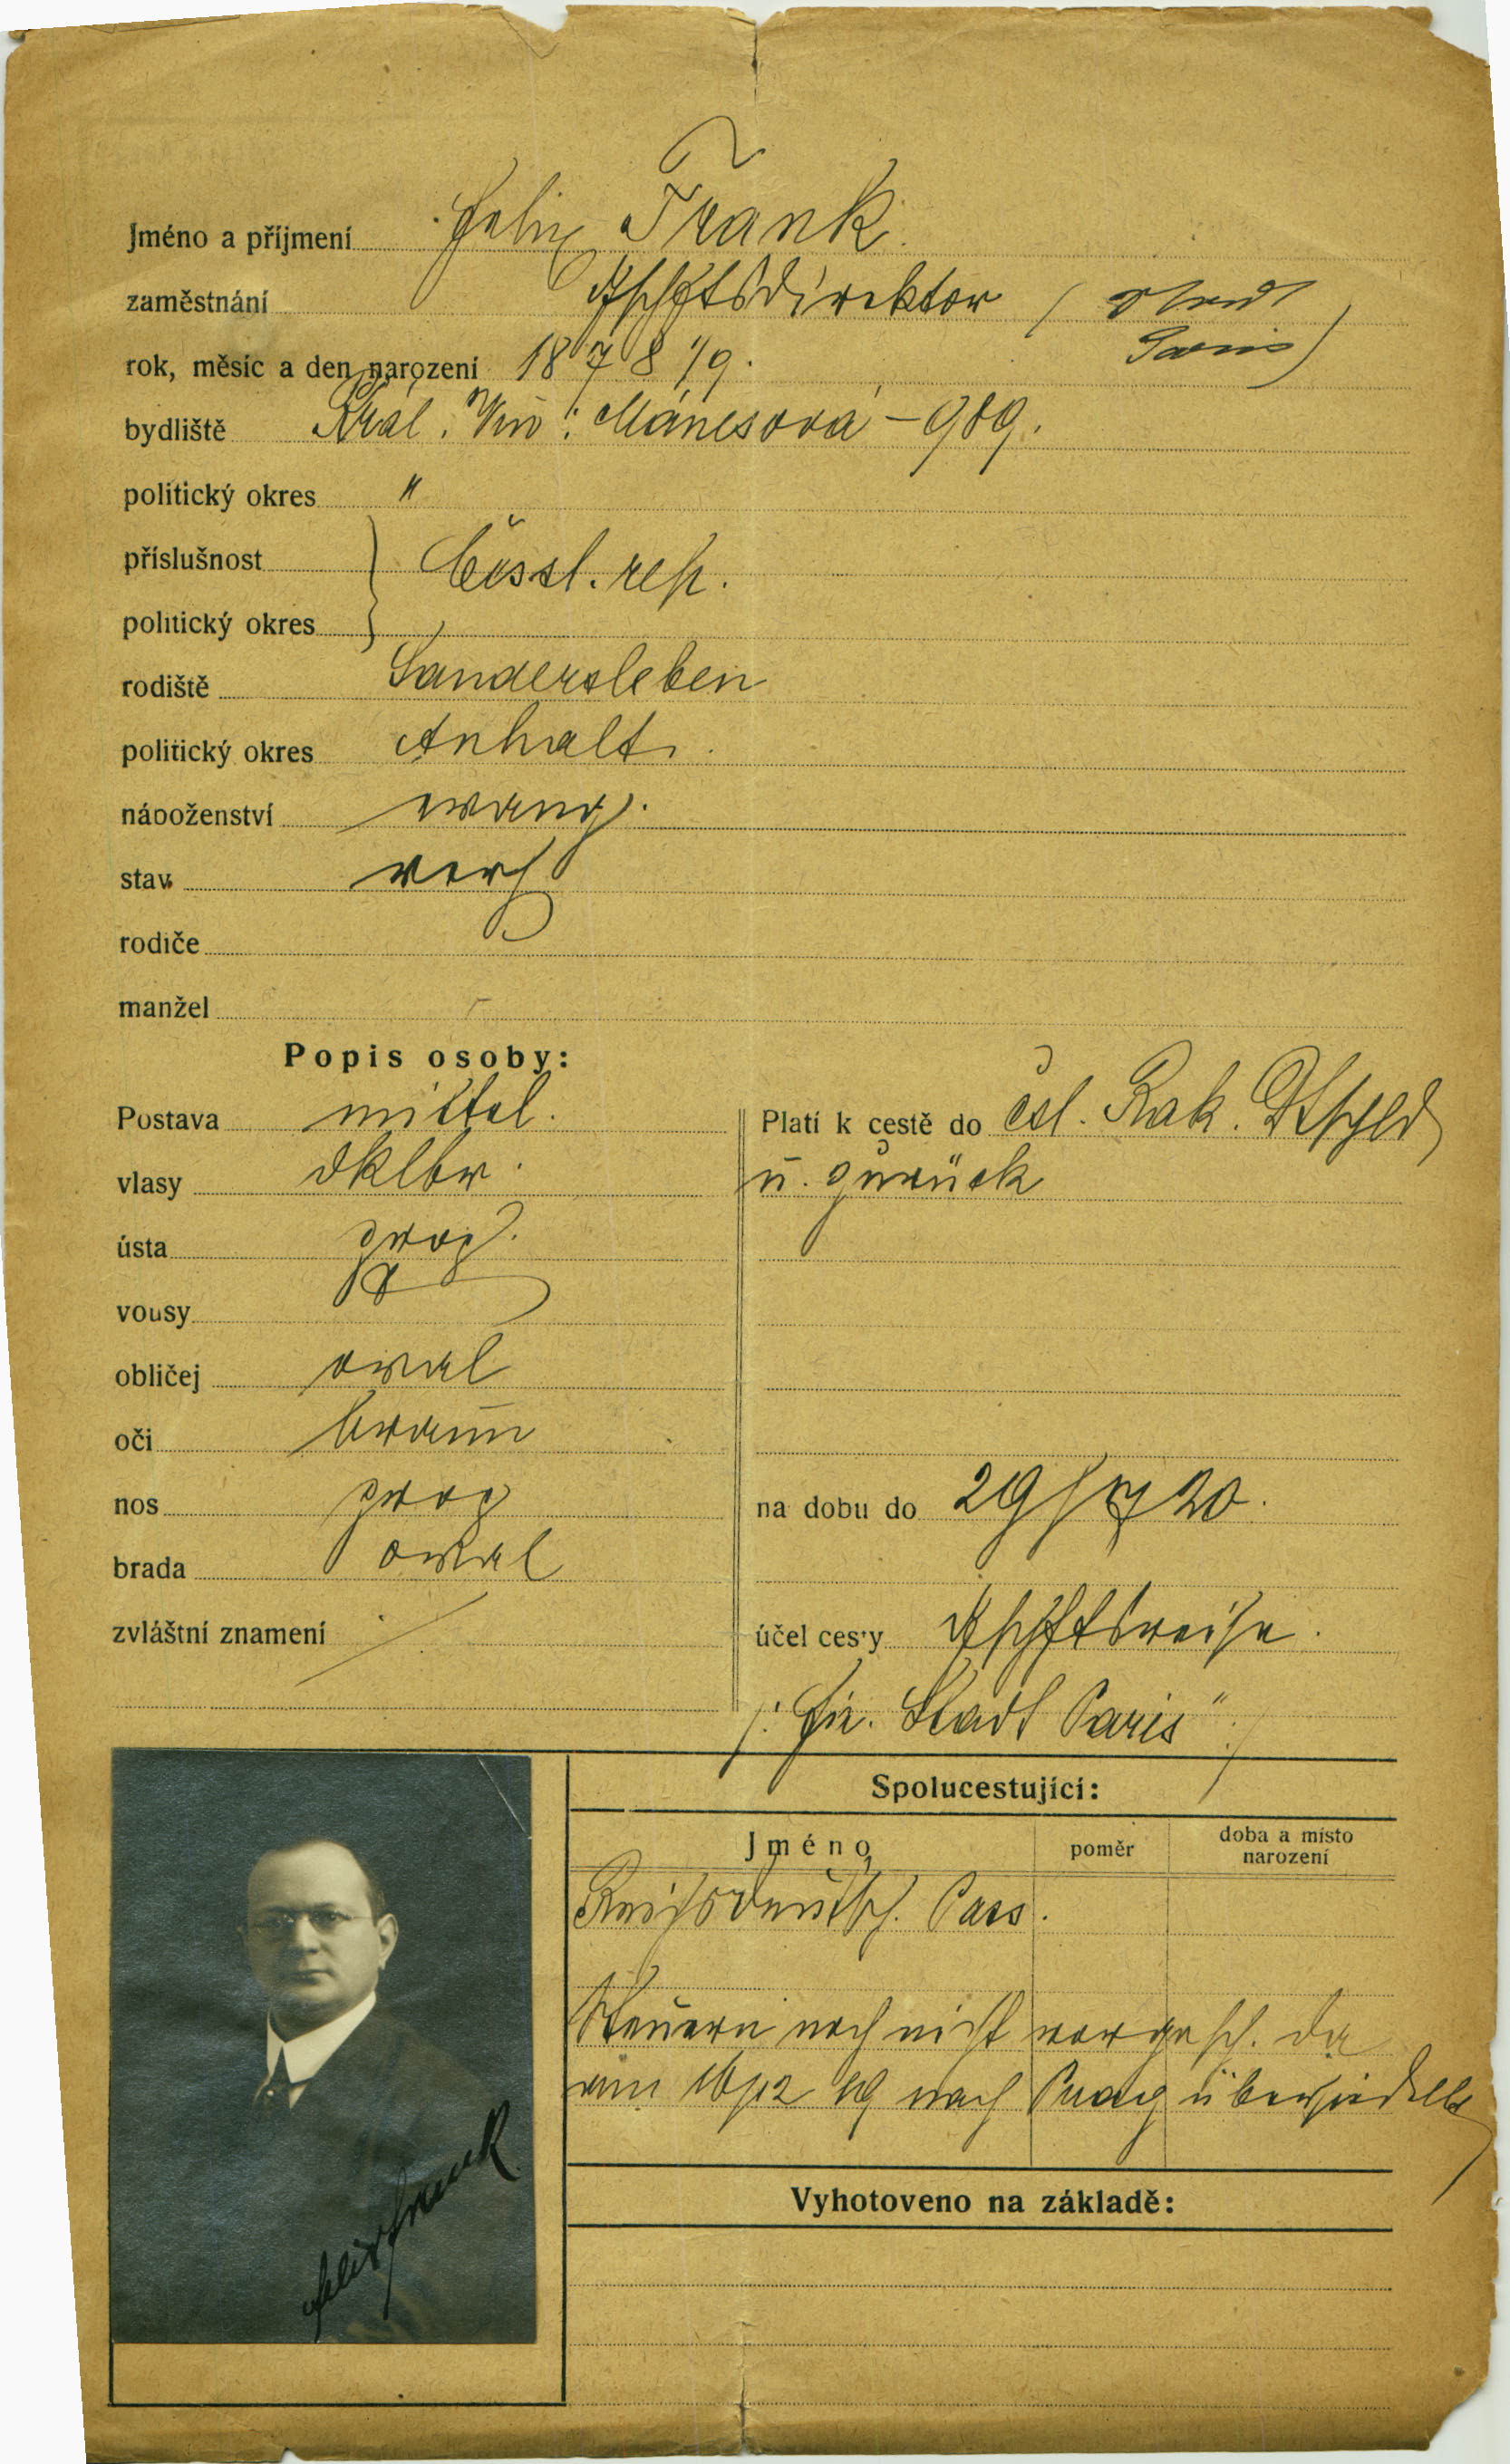 Jméno a příjmení Felix Frank.
zaměstnání Gschftsdirektor (Stadt
Paris)
rok, měsíc a den narození 1878 1/9.
bydliště Král. Vin: Mánesová - 989.
politický okres "
příslušnost Čessl. rep.
politický okres
rodiště Sandersleben
politický okres Anhalt.
náboženství evang.
stav verh
rodiče
manžel
Popis osoby:
Postava mittel.
vlasy dklbr.
ústa prop.
vousy
obličej oval
oči braun
nos prop
brada oval
zvláštní znamení /
Platí k cestě do čsl. Rak. Dtschld
u. zurück
na dobu do 29/7 20.
účel cesty Gschftsreise.
/: Fir. Stadt Paris" :/
Spolucestující:
Jméno poměr doba a místo
narození
Reichsdeutsch. Pass.
Steuern noch nicht vorgesch. da
am 16/12 19 nach Prag übersiedelt
Vyhotoveno na základě:
Felix Frank